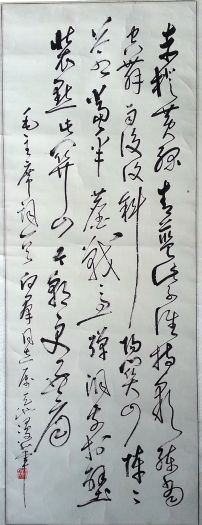 赤橙黄绿青蓝紫谁持彩练当
空舞雨后复斜阳关山阵阵
苍当年鏖战急弹洞前村壁
装点此关山今朝更好看
毛主席词一首 群同志属